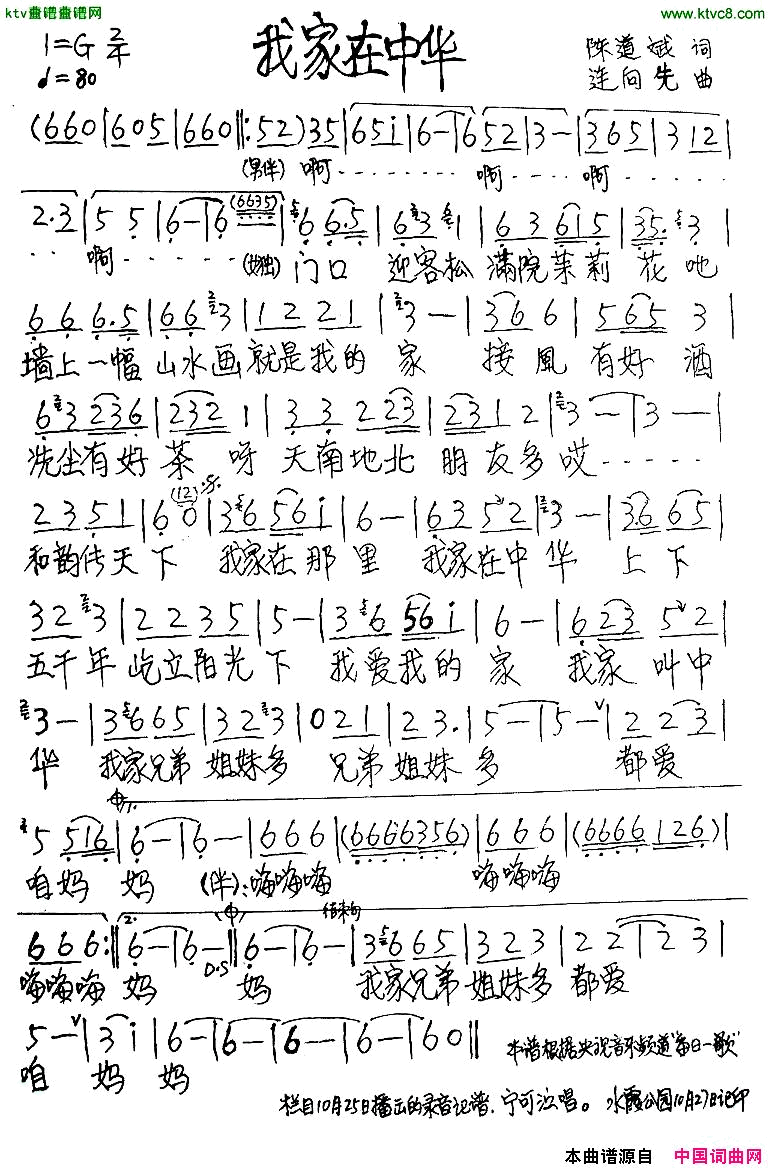 ktv虫谱虫谱网
www.ktvc8.com
我家在中华
1=G 2/4
♩=80
陈道斌 词
连向先 曲
(660|605|660‖:52)35|651|6-|652|3-|365|312|
(男伴)啊………啊…啊……
2·3|55|6-|6(6635)|66·5|631|63615|35·3|
··啊······(女独)门口 迎客松 满院茉莉 花吔
666·5|663|12221|3-|366|5653|
墙上一幅山水画就是我的 家 接風 有好 酒
63236|2321|33223|2312|3-|3-|
洗尘有好茶 呀 天南地北 朋友多哎……
2351|60|36561|6-|6352|3-|3665|
和韵传天下 我家在那里 我家在中华 上下
323|2235|5-|36561|6-|62352|
五千年 屹立阳光下 我爱我的 家 我家 叫中
3-|3665|323|021|23·|5-|5-|223|
华 我家兄弟 姐妹多 兄弟 姐妹 多 都爱
5516|6-|6-|666|(6666356)|666|(6666126)|
咱妈 妈 (伴):嗨嗨嗨 嗨嗨嗨
结束句
666:‖2.6-|6-‖6-|6-|3665|323|22|23|
D.S
嗨嗨嗨 妈 妈 我家兄弟 姐妹多 都爱
5-|31|6-|6-|6-|6-|60‖
咱 妈 妈
本谱根据央视音乐频道"每日一歌"
栏目10月25日播出的录音记谱,宁可泣唱。水霞公园10月27日记印
本曲谱源自 中国词曲网